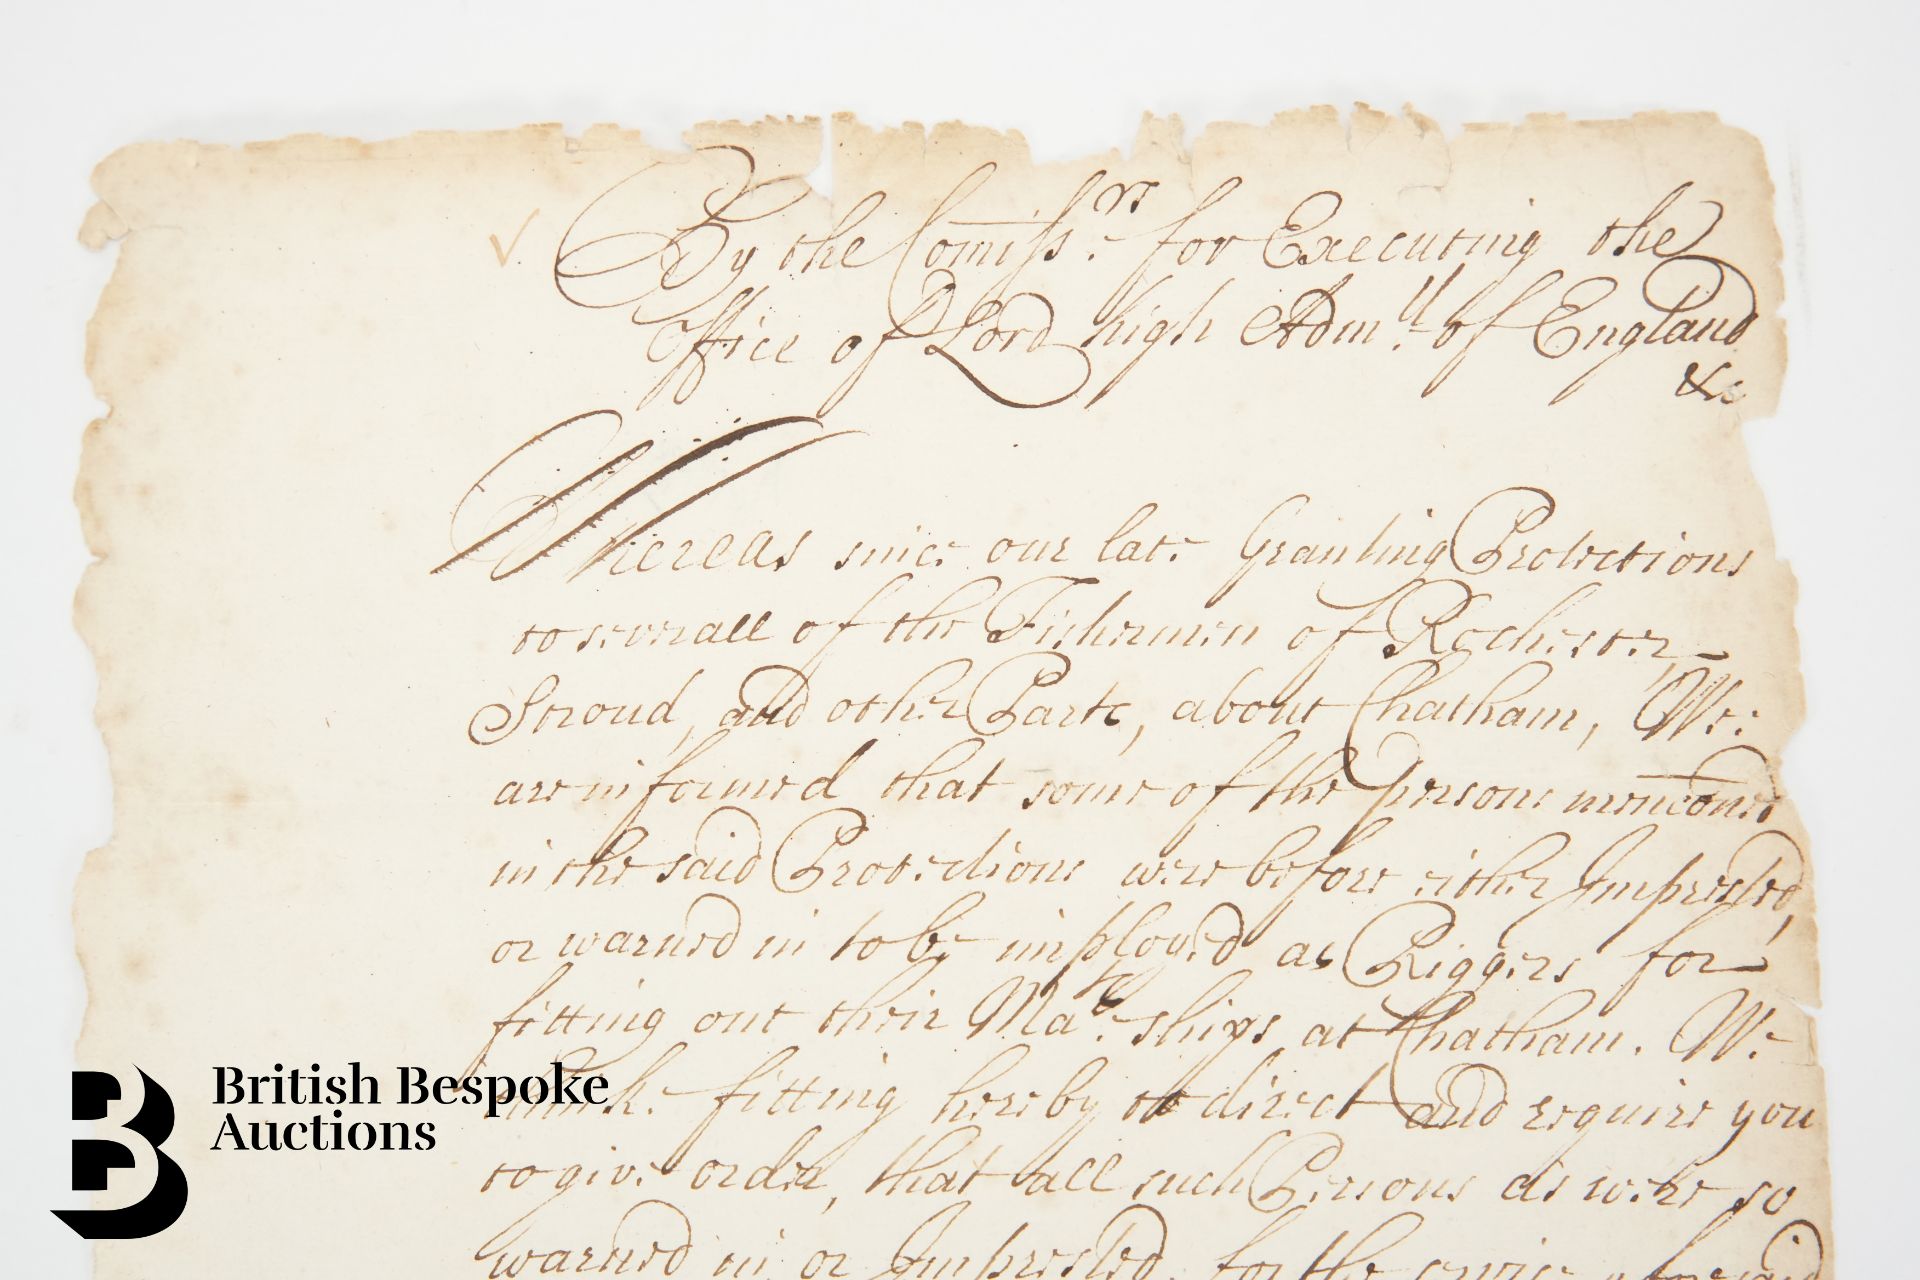 By the Comiss.rs for Executing the
Office of Lord high Adm.ll of England
&c
Whereas since our late Granting Protections
to severall of the Fishermen of Rochester,
Stroud, and other Parts, about Chatham, We
are informed that some of the persons menconed
in the said Protections were before either Impressed,
or warned in to be imployed as Riggers for
fitting out their Ma.ts ships at Chatham. We
think fitting hereby to direct and require you
to give order, that all such Persons as were so
warned in or Impressed, for the service aforesaid
British Bespoke
Auctions